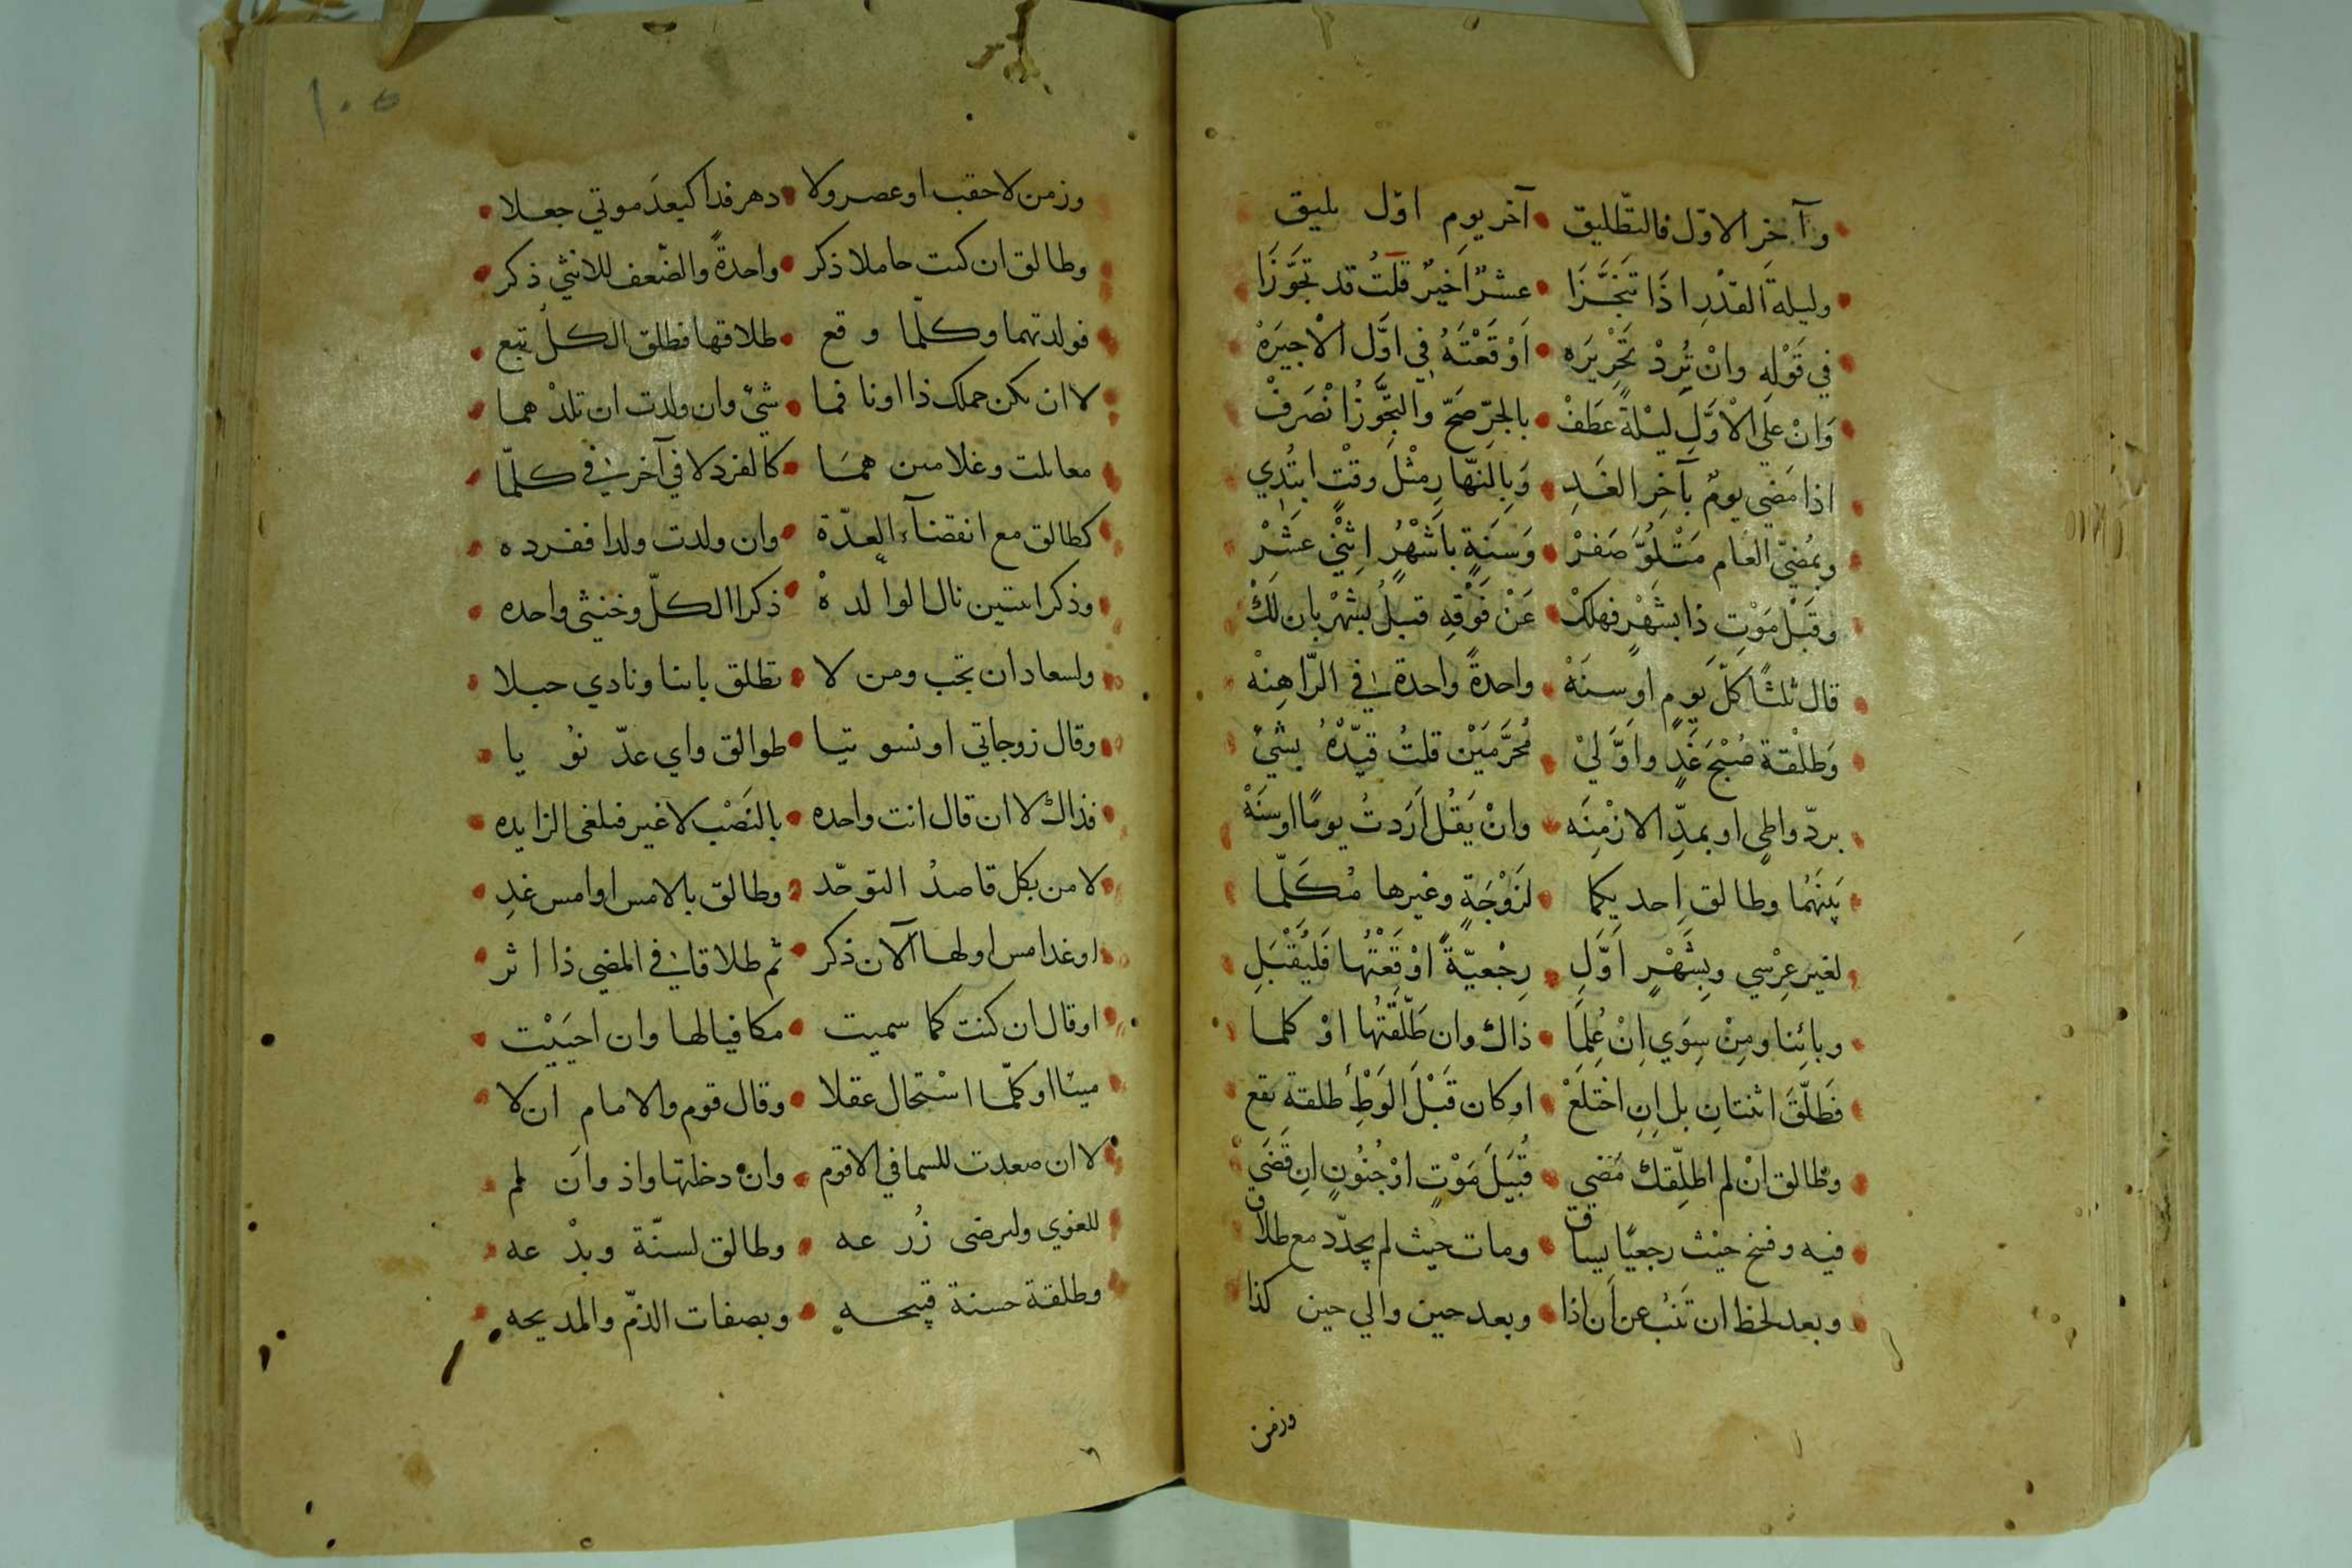 وآخِرِ الاوّل فالتّطليق • آخر يومٍ اوّل يليق
وليلةَ القدْرِ اذَا تَنَجَّزَا • عشرٌ اَخيرٌ قلتُ قد تجوَّزَا
في قَوْلِهِ وانْ تُرِدْ تَحْرِيرَه • اَوْقَعْتَهُ في اوَّل الاخيرَهْ
وَانْ على الْاوَّلِ ليْلةً عَطَفْ • بالجرّ صَحّ والتجَوُّزُ انْصَرَفْ
اذا مَضَى يومٌ بآخِرِ الغَدِ • وَبِالنّهارِ مِثْلَ وقْتٍ ابتُدِي
وبمُضيّ العَام مَتْلوَّ صَفَرْ • وَسَنَةٍ باَشْهُرٍ اِثْنَيْ عشَرْ
وقَبْل مَوْتِ ذا بشَهْرٍ فهلكْ • عَنْ فَوْقِهِ قبلُ بشهْرٍ بان لَكْ
قال ثلثًا كلّ يَومٍ اوسنَهْ • واحدةً واحدةٌ في الرّاهِنهْ
وَطلْقة صُبْحَ غَدٍ واَوَّليْ • مُحَرَّمَيْن قلتُ قيّدْهُ بشيْ
بردّ واطٍى اوبمدِّ الازْمِنَه • وانْ يَقُل اَرَدتُ يومًا اوسنَهْ
بَينَهُما وطالق اِحديكما • لزَوْجَةٍ وغيرها مُكَلّما
لغير عِرْسي وبِشَهْرٍ اَوَّلِ • رِجْعيّةً اوْقَعْتُها فَليُقْبَلِ
وبائِنا ومِنْ سِوَي اِنْ عُلِمَا • ذاك وان طَلّقتُها اوْ كلما
فَطَلّقَ اثنتانِ بل اِنِ اخْتلَعْ • اوكان قَبْلَ الوَطْئِ طلقة تقع
وطالق انْ لم اطلّقك مَضي • قُبَيلَ مَوْتٍ اوْجُنُونٍ اِن قَضَي
فيه وفسخ حيْث رجعيًا يساق • ومات حيث لم يجدّد مع طلاق
وبعد لحظ ان تَنُب عن اَن اذا • وبعد حين والي حين كذا
وزمن
١٠٥
وزمن لا حقب اوعصر ولا • دهر فذا كبعدَ موتي جعلا
وطالق ان كنت حاملا ذكر • واحدةً والضّعف للانثي ذكر
فولدتهما وكلّما وقع • طلاقها فطلق الكلُ تبع
لا ان يكن حملك ذا اونا فما • شئ وان ولدت ان تلدْهما
معا تلت وغلامين همَا • كالفرد لا في آخر في كلّما
كطالق مع انقضآء العدّة • وان ولدت ولدا ففرده
وذكرا ستين نال الوالدهْ • ذكرا الكلّ وخنثي واحده
ولسعاد ان تجب ومن لا • تطلق باننا ونادي حبلا
وقال زوجاتي اونسوتيا • طوالق واي عدّ نُويا
فذاك لا ان قال انت واحده • بالنَصْب لا غير فيلغى الزايده
لا من بكل قاصدُ التوحّد • وطالق بالامس اوامس غدِ
اوغد امس اولها الآن ذكر • ثم طلاقا في المضي ذا اثر
اوقال ان كنت كما سميت • مكافيا لها وان احيَيْت
ميتا اوكلّما اسْتحال عقلا • وقال قوم والامام ان لا
لا ان صعدت للسما في الاقوم • وان دخلتها واذ واَن لم
للغوي ولرضى زُرعه • وطالق لسنّة وبدْعه
وطلقة حسنة قبيحه • وبصفات الذمّ والمديحه